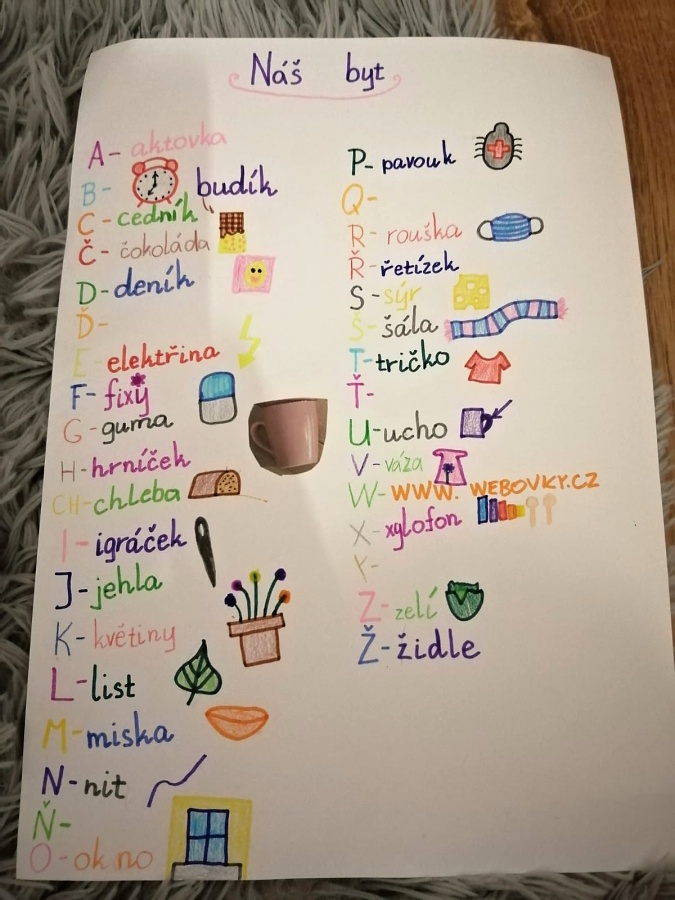 Náš byt
A- aktovka
B- budík
C- cedník
Č- čokoláda
D- deník
Ď-
E- elektřina
F- fixy
G- guma
H- hrníček
CH- chleba
I- igráček
J- jehla
K- květiny
L- list
M- miska
N- nit
Ň-
O- okno
P- pavouk
Q-
R- rouška
Ř- řetízek
S- sýr
Š- šála
T- tričko
Ť-
U- ucho
V- váza
W- WWW. WEBOVKY.CZ
X- xylofon
Y-
Z- zelí
Ž- židle